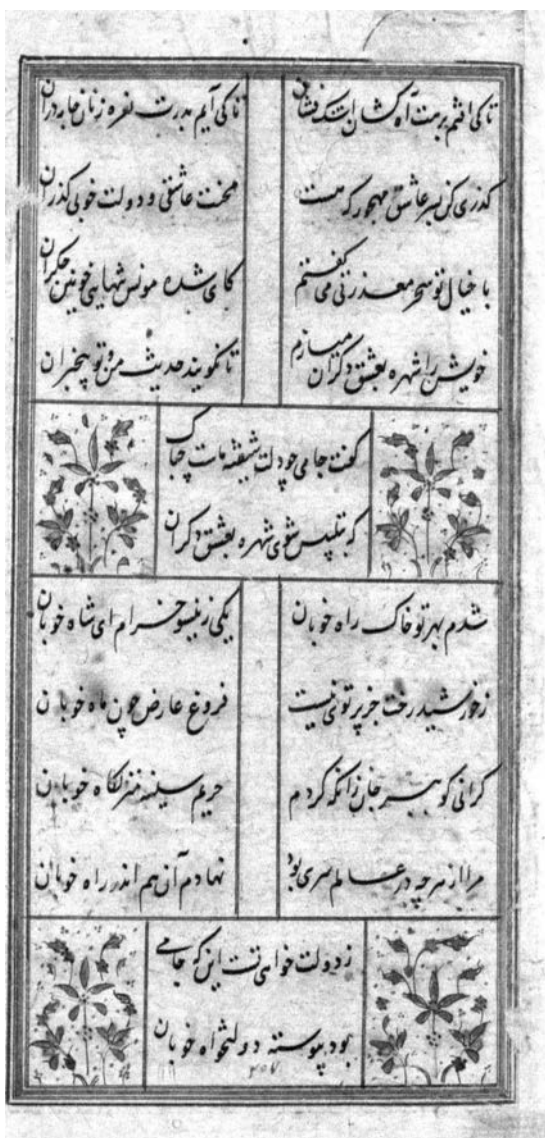 تا کی افتم برهت آه کشان اشک فشان تا کی آیم بدرت نعره زنان جامه دران
کذری کن بسر عاشق مهجور که هست محنت عاشقی و دولت خوبی کذران
با خیال تو سحر معذرتی می کفتم کای شده مونس شبهای خونین جکران
خویش را شهره بعشق دکران میسازم تا نکویند حدیث من و تو بیخبران
کفت جامی چو دلت شیفته ماست چه باک
که بتلبیس شوی شهره بعشق دکران
شدم بهر تو خاک راه خوبان یکی زینسو خرام ای شاه خوبان
ز خورشید رخت جز پرتوی نیست فروغ عارض چون ماه خوبان
کرانی کو ببر جان زانکه کردم حریم سینه منزلکاه خوبان
مرا از هرچه در عالم سری بود نهادم آن هم اندر راه خوبان
ز دولت خواهی تست این که جامی
بود پیوسته دولتخواه خوبان